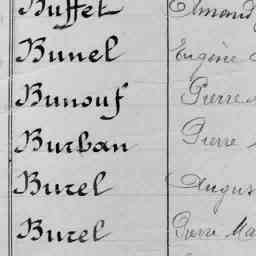 Buffet
Bunel Eugène
Bunouf Pierre
Burban Pierre
Burel
Burel Pierre Ma